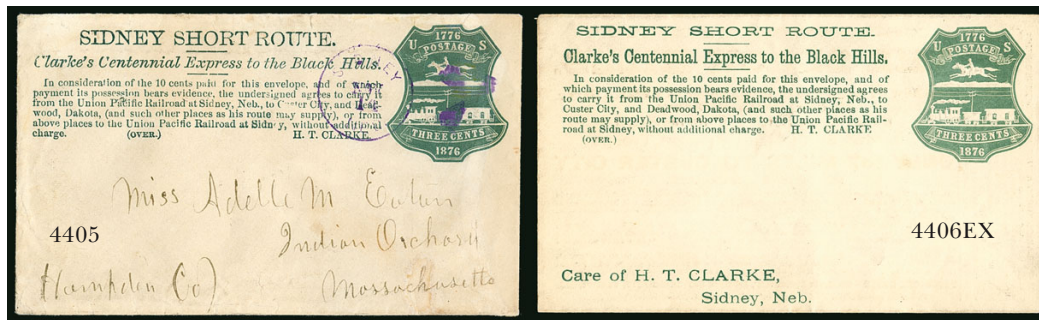 SIDNEY SHORT ROUTE.
Clarke's Centennial Express to the Black Hills.
In consideration of the 10 cents paid for this envelope, and of which
payment its possession bears evidence, the undersigned agrees to carry it
from the Union Pacific Railroad at Sidney, Neb., to Custer City, and Dead-
wood, Dakota, (and such other places as his route may supply), or from
above places to the Union Pacific Railroad at Sidney, without additional
charge. (OVER.)
H. T. CLARKE.
SIDNEY
1776
U S
POSTAGE
THREE CENTS
1876
Miss Adelle M Eaton
Indian Orchard
Hampden Co)
Massachusetts
4405
SIDNEY SHORT ROUTE.
Clarke's Centennial Express to the Black Hills.
In consideration of the 10 cents paid for this envelope, and of
which payment its possession bears evidence, the undersigned agrees
to carry it from the Union Pacific Railroad at Sidney, Neb., to
Custer City, and Deadwood, Dakota, (and such other places as his
route may supply), or from above places to the Union Pacific Rail-
road at Sidney, without additional charge. H. T. CLARKE
(OVER.)
1776
U S
POSTAGE
THREE CENTS
1876
4406EX
Care of H. T. CLARKE,
Sidney, Neb.